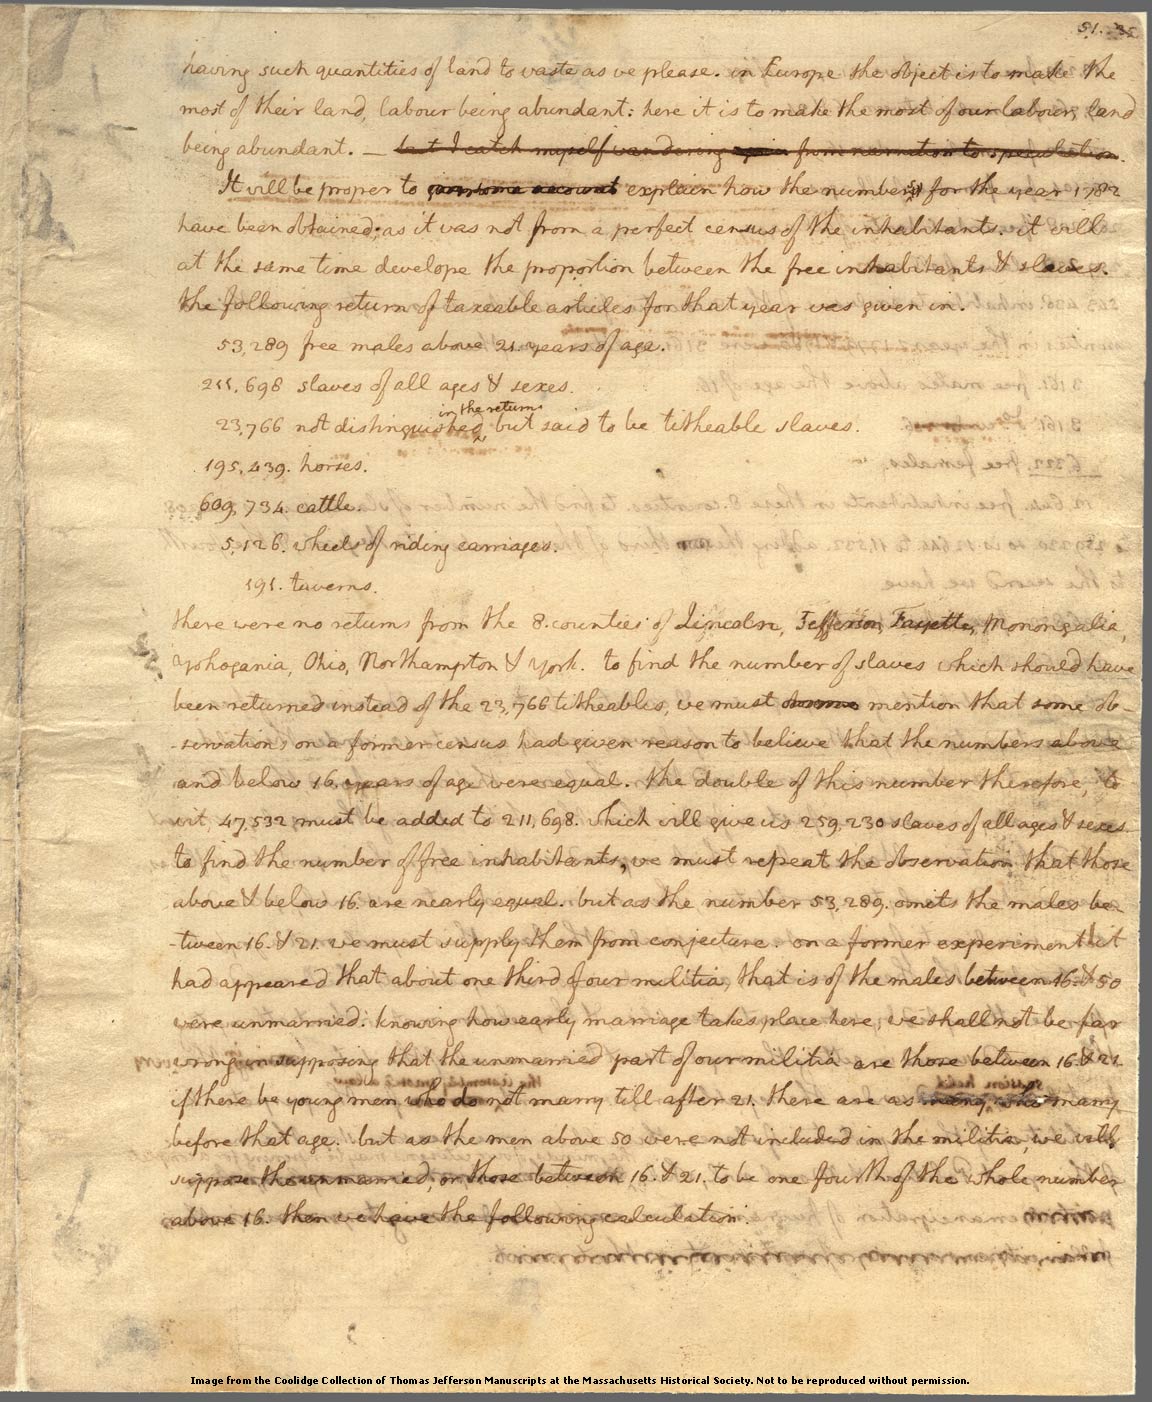 51. 35
having such quantities of land to waste as we please. in Europe the object is to make the
most of their land, labour being abundant: here it is to make the most of our labour, land
being abundant. — but I catch myself wandering again from narration to speculation.
It will be proper to explain how the numbers for the year 1782
have been obtained; as it was not from a perfect census of the inhabitants. it will
at the same time develope the proportion between the free inhabitants & slaves.
the following return of taxeable articles for that year was given in.
53,289 free males above 21. years of age.
211,698 slaves of all ages & sexes.
in the return
23,766 not distinguished, but said to be titheable slaves.
195,439. horses.
609,734. cattle.
5,126. wheels of riding carriages.
191. taverns.
there were no returns from the 8. counties of Lincoln, Jefferson, Fayette, Monongalia,
Yohogania, Ohio, Northampton & York. to find the number of slaves which should have
been returned instead of the 23,766 titheables, we must mention that some ob-
-servations on a former census had given reason to believe that the numbers above
and below 16. years of age were equal. the double of this number therefore, to
wit, 47,532 must be added to 211,698. which will give us 259,230 slaves of all ages & sexes.
to find the number of free inhabitants, we must repeat the observation that those
above & below 16. are nearly equal. but as the number 53,289. omits the males be-
-tween 16. & 21. we must supply them from conjecture. on a former experiment it
had appeared that about one third of our militia, that is of the males between 16. & 50
were unmarried. knowing how early marriage takes place here, we shall not be far
wrong in supposing that the unmarried part of our militia are those between 16. & 21.
if there be young men who do not marry till after 21. there are as many who marry
before that age. but as the men above 50 were not included in the militia, we will
suppose the unmarried, or those between 16. & 21. to be one fourth of the whole number
above 16. then we have the following calculation
Image from the Coolidge Collection of Thomas Jefferson Manuscripts at the Massachusetts Historical Society. Not to be reproduced without permission.